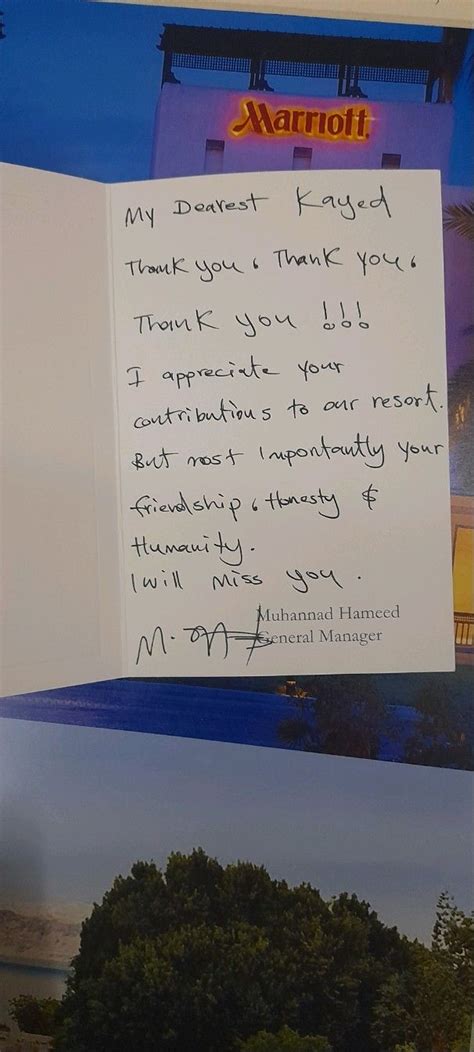 Marriott
My Dearest Kayed
Thank you, Thank you,
Thank you !!!
I appreciate your
contributions to our resort.
But most Impontantly your
friendship, Honesty &
Humanity.
I will miss you.
Muhannad Hameed
General Manager